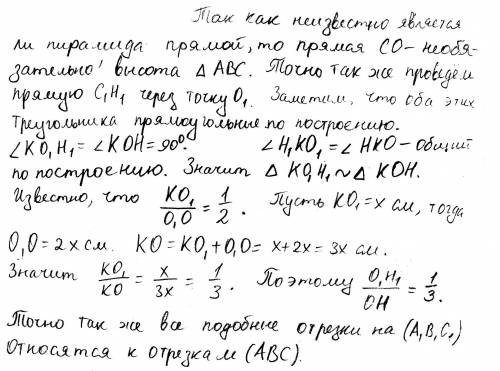 Так как неизвестно является
ли пирамида прямой, то прямая CO - необя-
зательно высота △ ABC. Точно так же проведём
прямую C₁H₁ через точку O₁. Заметим, что оба этих
треугольника прямоугольные по построению.
∠KO₁H₁ = ∠KOH = 90°. ∠H₁KO₁ = ∠HKO - общий
по построению. Значит △ KO₁H₁ ~ △ KOH.
Известно, что KO₁/O₁O = 1/2. Пусть KO₁ = x см, тогда
O₁O = 2x см. KO = KO₁ + O₁O = x + 2x = 3x см.
Значит KO₁/KO = x/3x = 1/3. Поэтому O₁H₁/OH = 1/3.
Точно так же все подобные отрезки на (A₁B₁C₁)
Относятся к отрезкам (ABC).